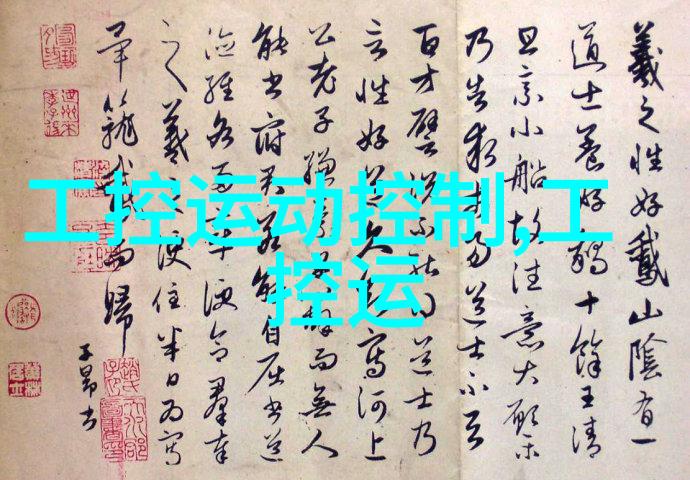 工控运动控制,工
控运
羲之性好鵞山陰有一
道士養好鵝十餘王清
旦乘小船故往意大願樂
乃告求市易道士不与
百方譬說不能得道士乃
言性好道久欲寫河上
公老子縑素早辦而無人
能書府君若能自屈書道
德經各兩章便合羣奉
羲之便住半日為寫
畢籠鵝而歸
子昂書